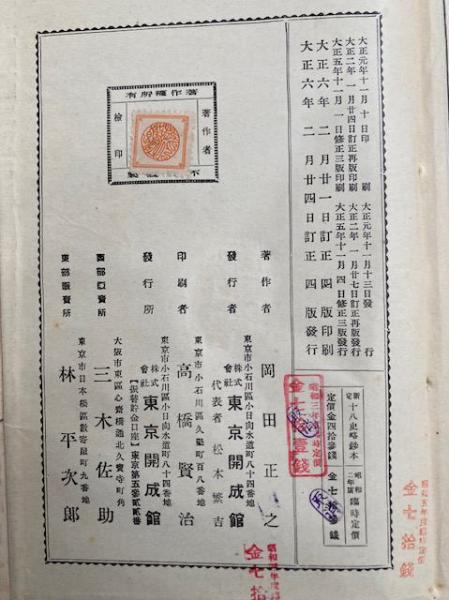 大正元年十一月十日印刷
大正元年十一月十三日發行
大正二年一月廿四日訂正再版印刷
大正二年一月廿七日訂正再版發行
大正五年十一月一日修正三版印刷
大正五年十一月四日修正三版發行
大正六年二月廿一日訂正四版印刷
大正六年二月廿四日訂正四版發行
新定十八史略鈔本
定價金四拾參錢
昭和二年度臨時定價
金七拾
錢
昭和三年
時定價
金七
壹錢
昭和五年度臨時定價
金七拾錢
著作權所有
著作者
檢印
不
製
著作者
岡田正之
東京市小石川區小日向水道町八十四番地
發行者
株式會社東京開成館
代表者 松本繁吉
東京市小石川區久堅町百八番地
印刷者
高橋賢治
東京市小石川區小日向水道町八十四番地
發行所
株式會社東京開成館
【振替貯金口座】東京第五參貳貳番
西部販賣所
大阪市東區心齋橋通北久寶寺町角
三木佐助
東部販賣所
東京市日本橋區數寄屋町九番地
林平次郎
昭和
年度
金七拾